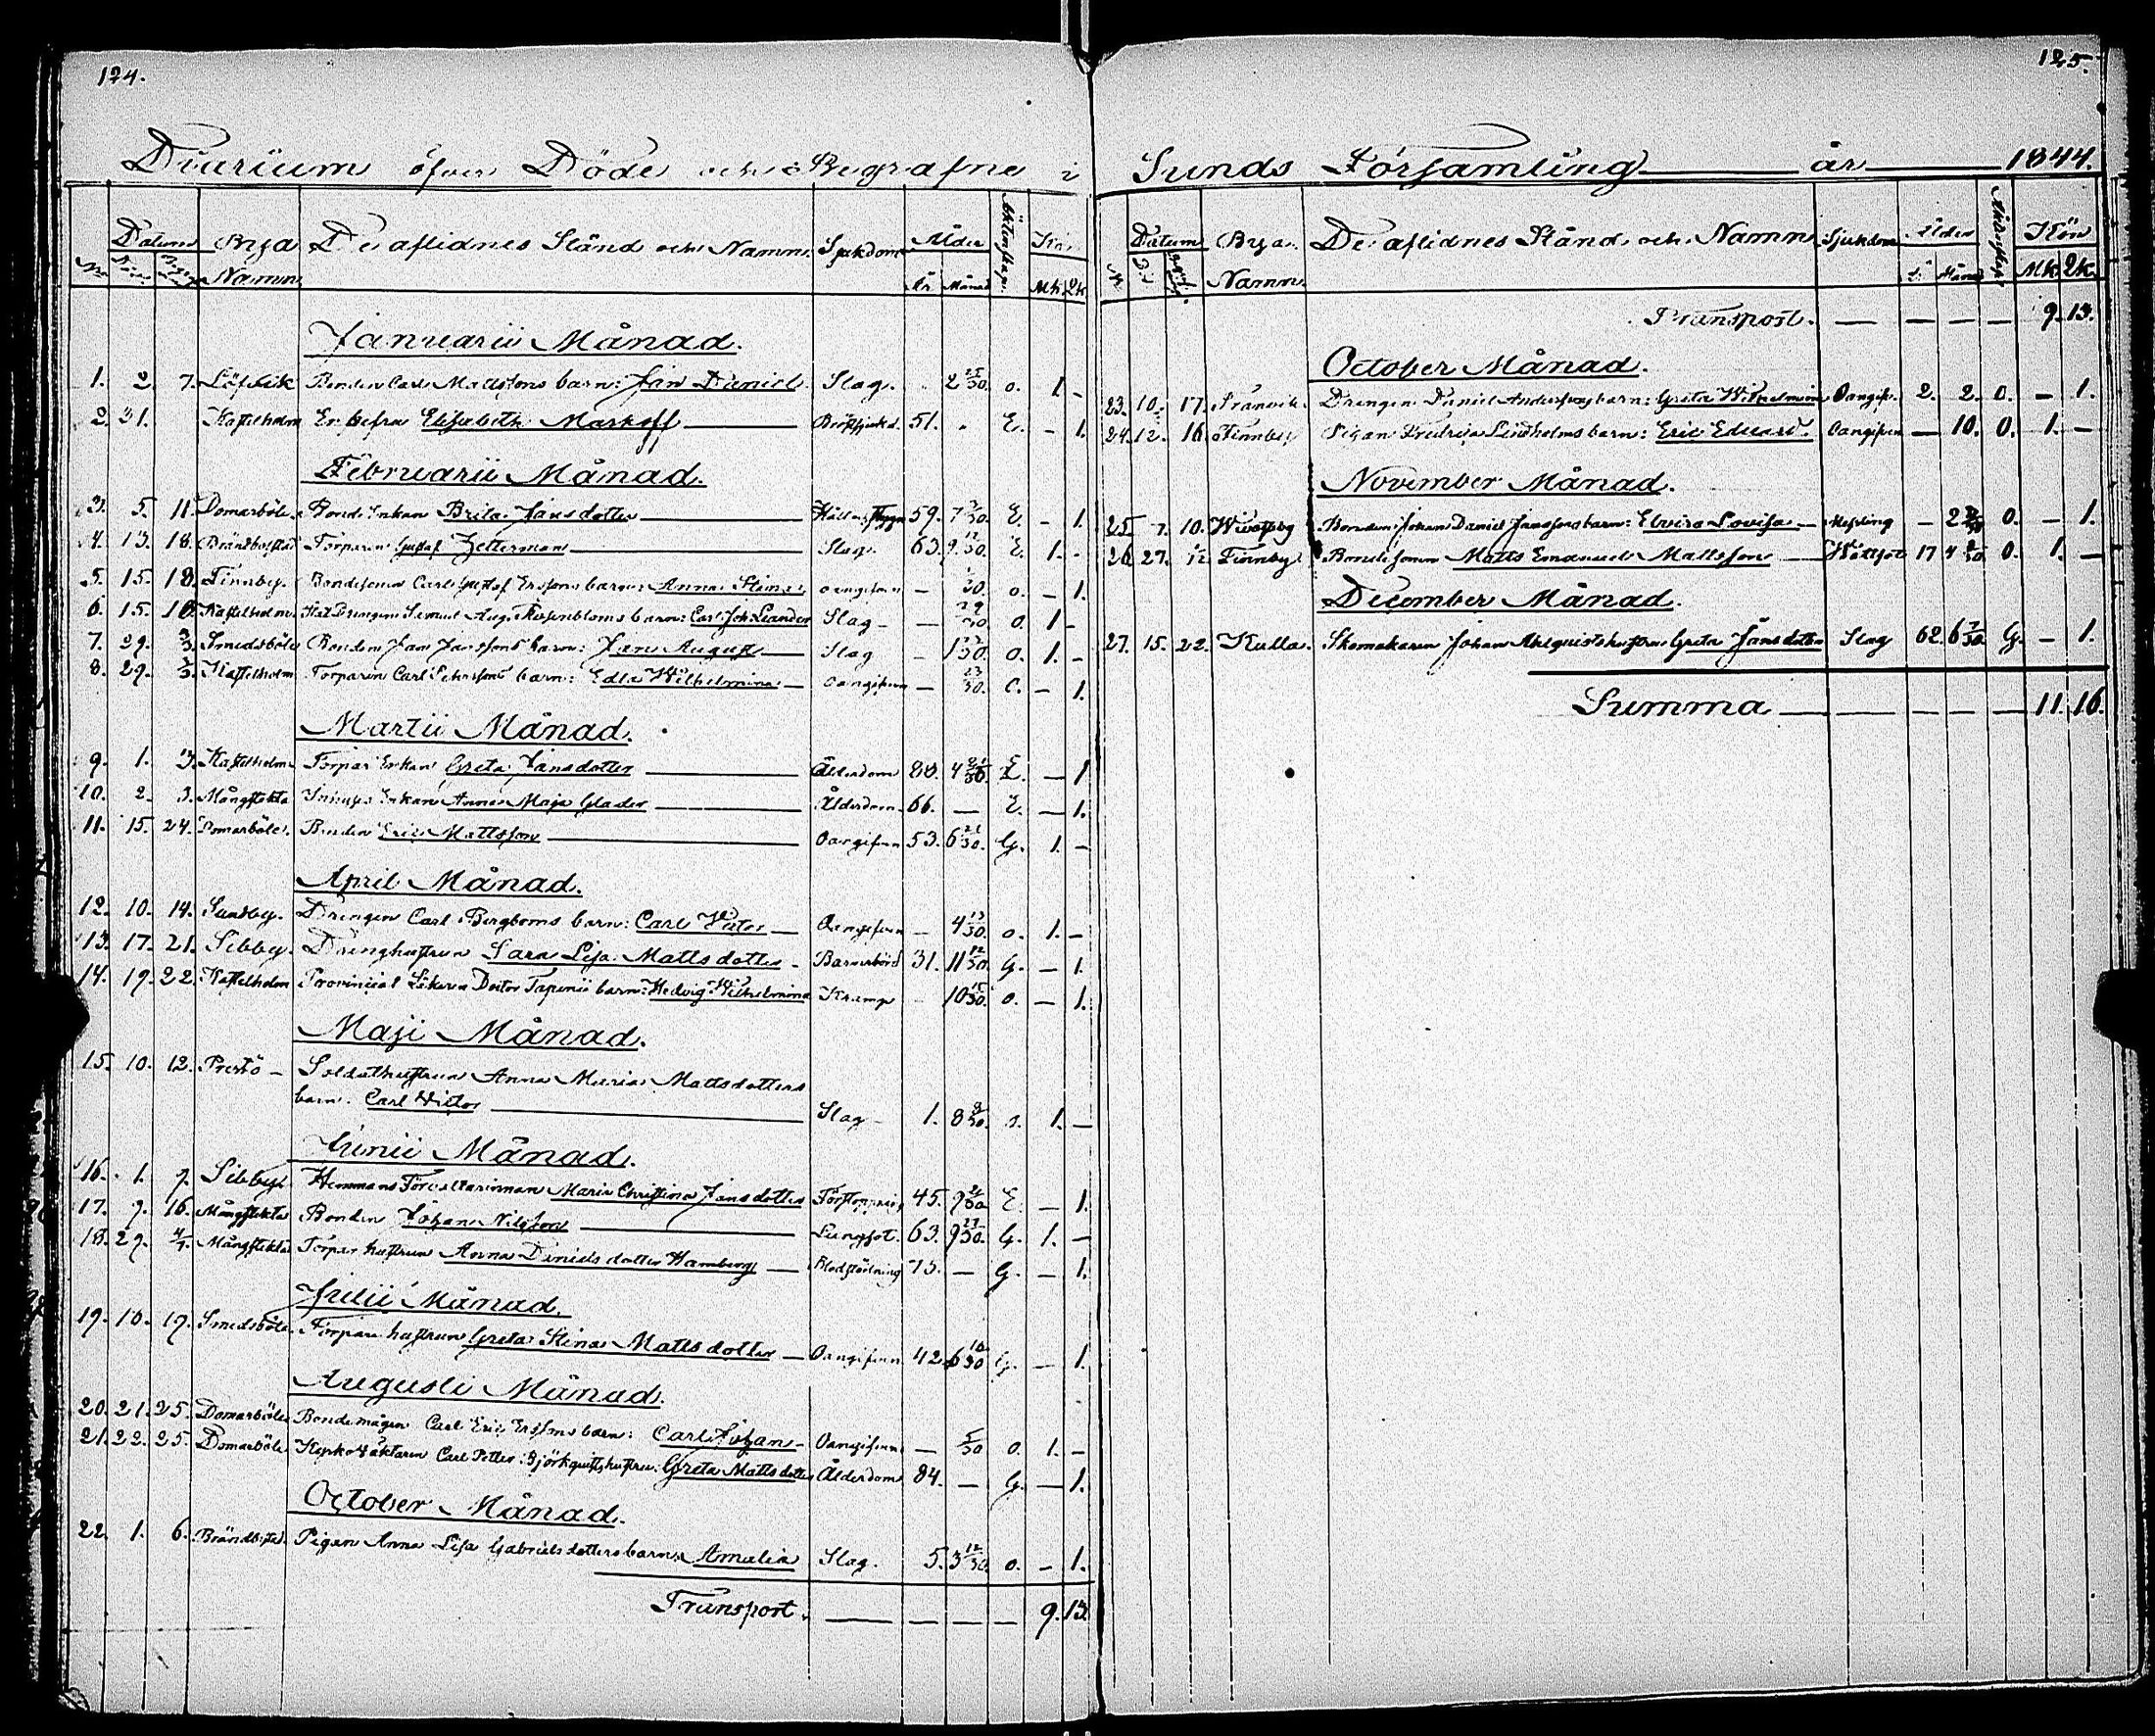 124.
Diarium öfver Döde och Begrafne i
Datum Bya De aflidnes Stånd och Namn Sjukdom Ålder Äktenskap Kön
No Namn År Månad Mk Qk
Januarii Månad.
1. 2. 7. Löfvik Bonden Carl Mattssons barn: Jan Daniel Slag. - 2 25/30. o. 1. -
2. 31. Kastelholm Enkefru Elisabeth Markoff Bröstsjukd. 51. - E. - 1.
Februarii Månad.
3. 5. 11. Domarböle Bonde Enkan Brita Jansdotter 59. 7 E. - 1.
4. 13. 18. Brändbolstad Torparen Gustaf Zetterman Slag. 63. 9 E. 1. -
5. 15. 18. Finnby. Bondesonen Carl Gustaf Erssons barn: Anna Stina oangifven - /30. o. - 1.
6. 15. 18. Kastelholm Aug. barn: Carl Joh: Leander Slag - - o. 1 -
7. 29. 3/3. Smedsböle Bonden Jan Janssons barn: Jan August Slag - 1 /30. o. 1. -
8. 29. 3/3. Kastelholm Torparen Carl Pehrssons barn: Edla Wilhelmina oangifven - 23/30. o. - 1.
Martii Månad.
9. 1. 3. Kastelholm Torpar Enkan Greta Jansdotter Ålderdom 80. 4 E. - 1
10. 2. 3. Mångstekta Inhyses Enkan Anna Maja Glader Ålderdom. 66. - E. - 1.
11. 15. 24. Domarböle. Bonden Eric Mattsson Oangifven 53. 6 21/30. G. 1. -
April Månad.
12. 10. 14. Sundby. Drengen Carl Bergboms barn: Carl Victor Oangifven - 4 13/30. o. 1. -
13. 17. 21. Sibby. Drenghustrun Sara Lisa Mattsdotter - Barnsbörd 31. 11 12/30. G. - 1.
14. 19. 22. Kastelholm Provincial Läkaren Doctor Tapenii barn: Hedvig Wilhelmina Kramp - 10 15/30. o. - 1.
Maji Månad.
15. 10. 12. Prestö - Soldathustrun Anna Maria Mattsdotters
barn. Carl Victor Slag - 1. 8 9/30. o. 1. -
Junii Månad.
16. 1. 9. Sibby Hemmans Maria Christina Jansdotter Förstoppning 45. 9 E. - 1.
17. 9. 16. Mångstekta Bonden Johan Nilsson Lungsot. 63. 9 27/30. G. 1. -
18. 29. 4/7. Mångstekta Torpar hustrun Anna Daniels dotter Hamberg Blodstörtning 75. - G. - 1.
Julii Månad.
19. 10. 19. Smedsböle. Torpare hustrun Greta Stina Mattsdotter Oangifven 42. 6 10/30 G. - 1.
Augusti Månad.
20. 21. 25. Domarböle Bondemågen Carl Eric Erssons barn: Carl Johan - Oangifven - 5/30 o. 1. -
21. 22. 25. Domarböle. Carl Petter Björkquists hustru: Greta Mattsdotter Ålderdom 84. - G. - 1.
October Månad.
22. 1. 6. Brändbolst. Pigan Anna Lisa Gabrielsdotters barn: Amalia Slag. 5. 3 12/30. o. - 1.
Transport. - - - - 9. 13.
125.
Sunds Församling år 1844.
Datum Bya De aflidnes Stånd och Namn Sjukdom Ålder Äktenskap Kön
Namn. År Månad Mk Qk
Transport. - - - - 9. 13.
October Månad.
23. 10. 17. Tranvik. Drengen Daniel Anderssons barn: Greta Wilhelmina Oangifv. 2. 2. o. - 1.
24. 12. 16. Finnby Pigan Fredrica Lindholms barn: Eric Eduard. Oangifven - 10. o. 1. -
November Månad.
25. 7. 10. Bonden Johan Daniel Janssons barn: Elvira Lovisa - Messling - 2 o. - 1.
26. 27. 1/12 Finnby. Bondesonen Matts Emanuel Mattsson 17 4 o. 1. -
December Månad.
27. 15. 22. Kulla. Skomakaren Johan Ahlquists hustru Greta Jansdotter Slag 62. 6 7/30 G. - 1.
Summa - - - - 11. 16.